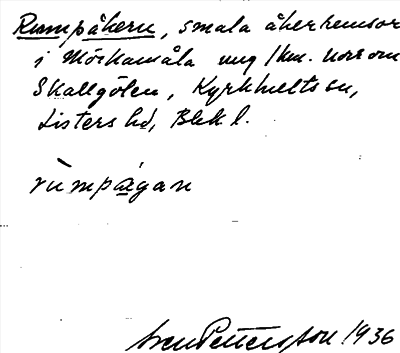 Rumpåkern, smala åkerremsor
i Mörkamåla ung 1 km. norr om
Skallgölen, Kyrkhults sn,
Listers hd, Blek l.
rumpågan
Sven Pettersson 1936